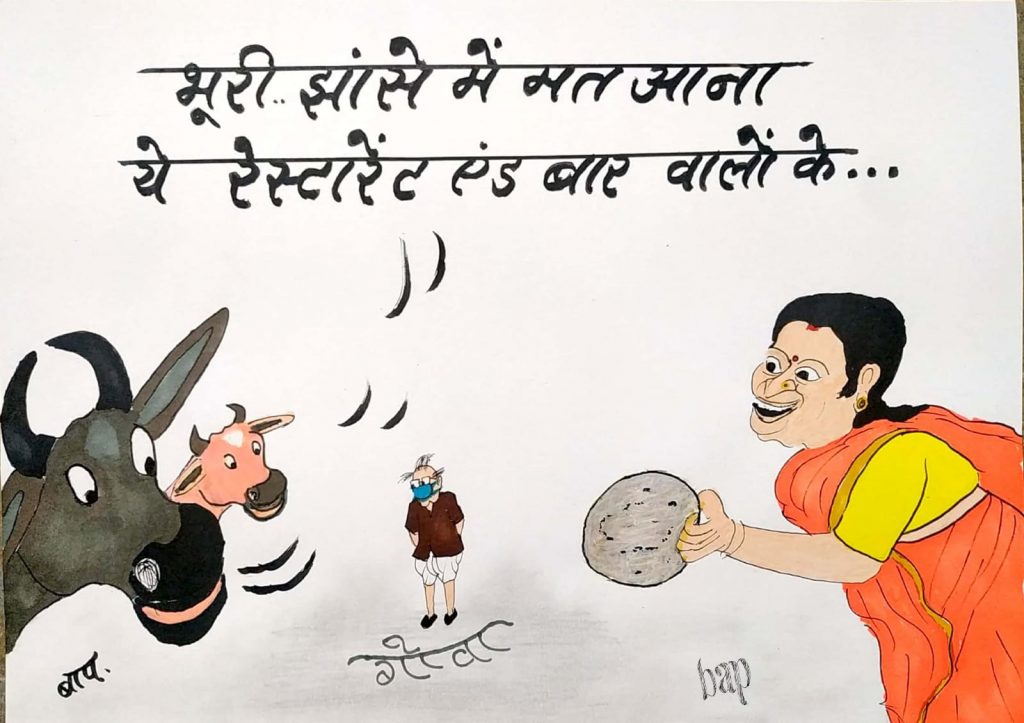 भूरी.. झांसे में मत आना
ये रेस्टारेंट एंड बार वालों के...
बाप.
bap